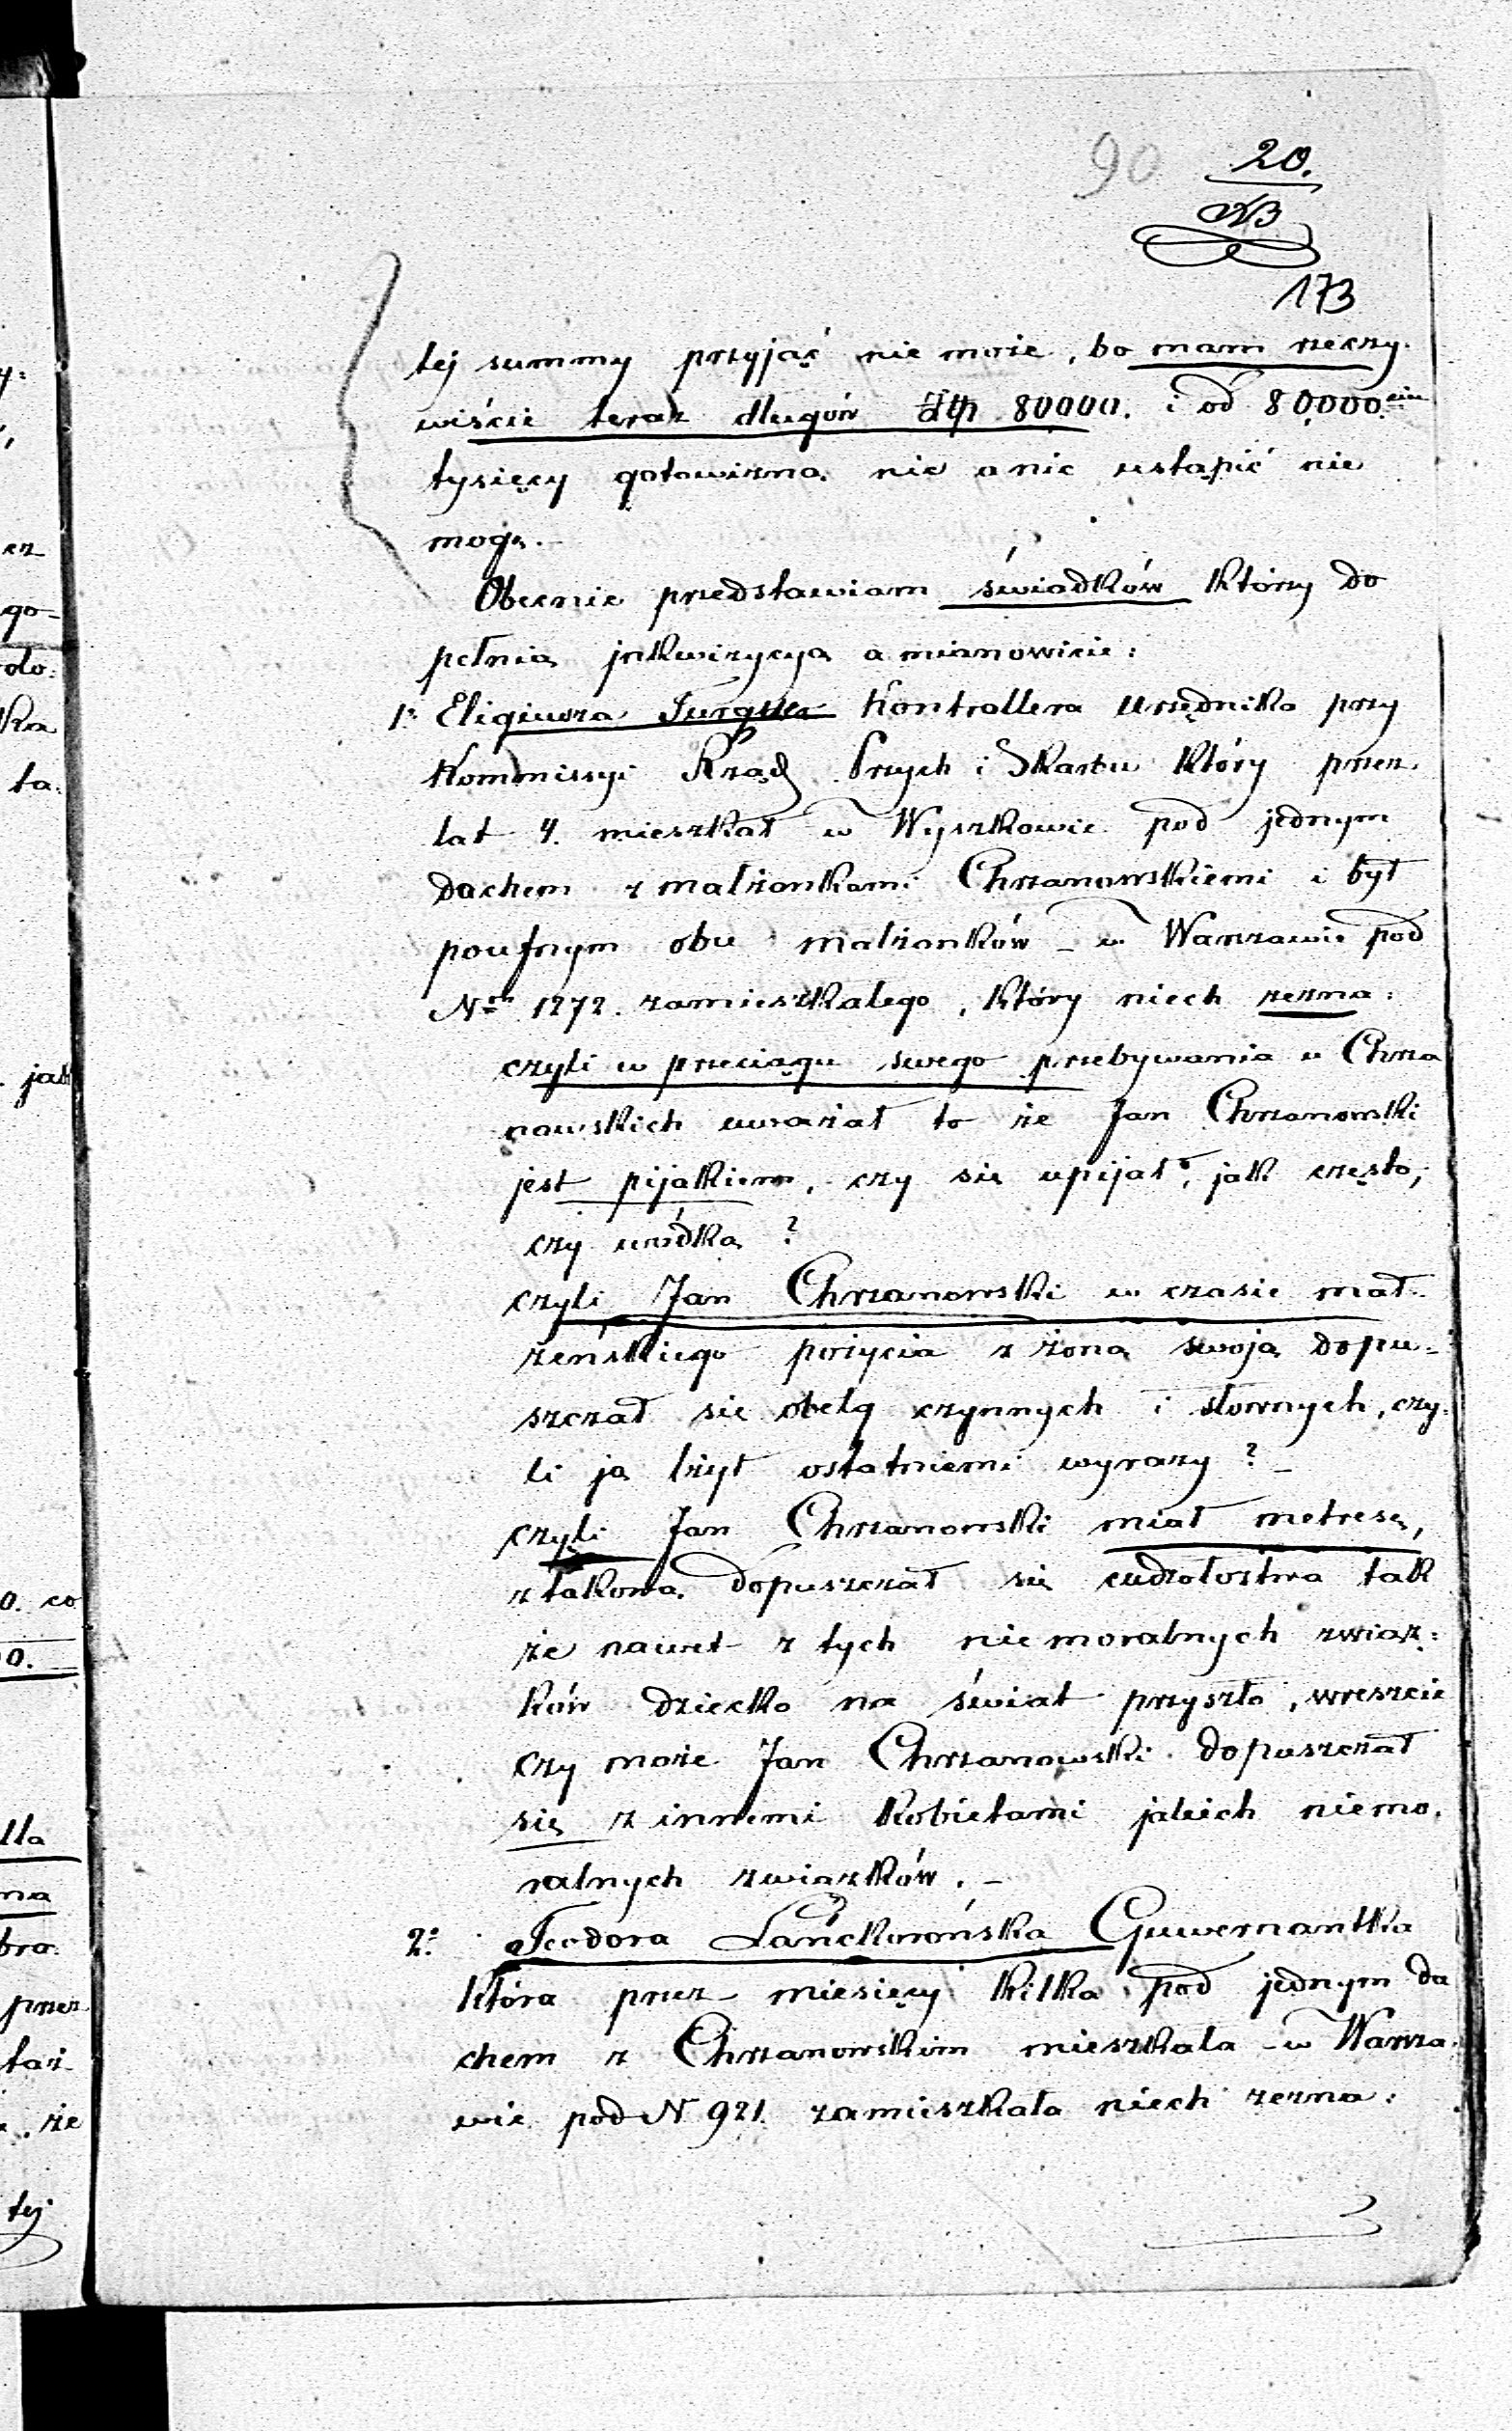 90 20.
NB
173
tej summy przyjąć nie może, bo mam rzeczy-
wiście teraz długów złp 80000. i od 80,000.
tysięcy gotowizną nic a nic ustąpić nie
mogę.-
Obecnie przedstawiam świadków którzy do
pełnią inkwizycyą a mianowicie:
1. Eligiusza Kontrollera urzędnika przy
Kommissyi Rząd Przych i Skarbu który przez
lat 4. mieszkał w Wyszkowie pod jednym
dachem z małżonkami Chrzanowskiemi i był
poufnym obu małżonków - w Warszawie pod
No 1272. zamieszkałego, który niech zezna:
czyli w przeciągu swego przebywania u Chrza
nowskich uważał to że Jan Chrzanowski
jest pijakiem, czy się upijał, jak często,
czy wódką?
czyli Jan Chrzanowski w czasie mał-
żeńskiego pożycia z żoną swoją dopu-
szczał się obelg czynnych i słownych, czy-
li ją lżył ostatniemi wyrazy?-
czyli Jan Chrzanowski miał metresę,
z takową dopuszczał się cudzołostwa tak
że nawet z tych niemoralnych związ-
ków dziecko na świat przyszło, wreszcie
czy może Jan Chrzanowski dopuszczał
się z innemi kobietami jakich niemo-
ralnych związków.-
2. Teodora Lanckorońska Guwernantka
która przez miesięcy kilka pod jednym da
chem z Chrzanowskim mieszkała - w Warsza-
wie pod N 921. zamieszkała niech zezna:
y:
cz
go-
do:
ka
ta.
jak
0. co
00.
lla
na
bra:
przez
taż
że
tej